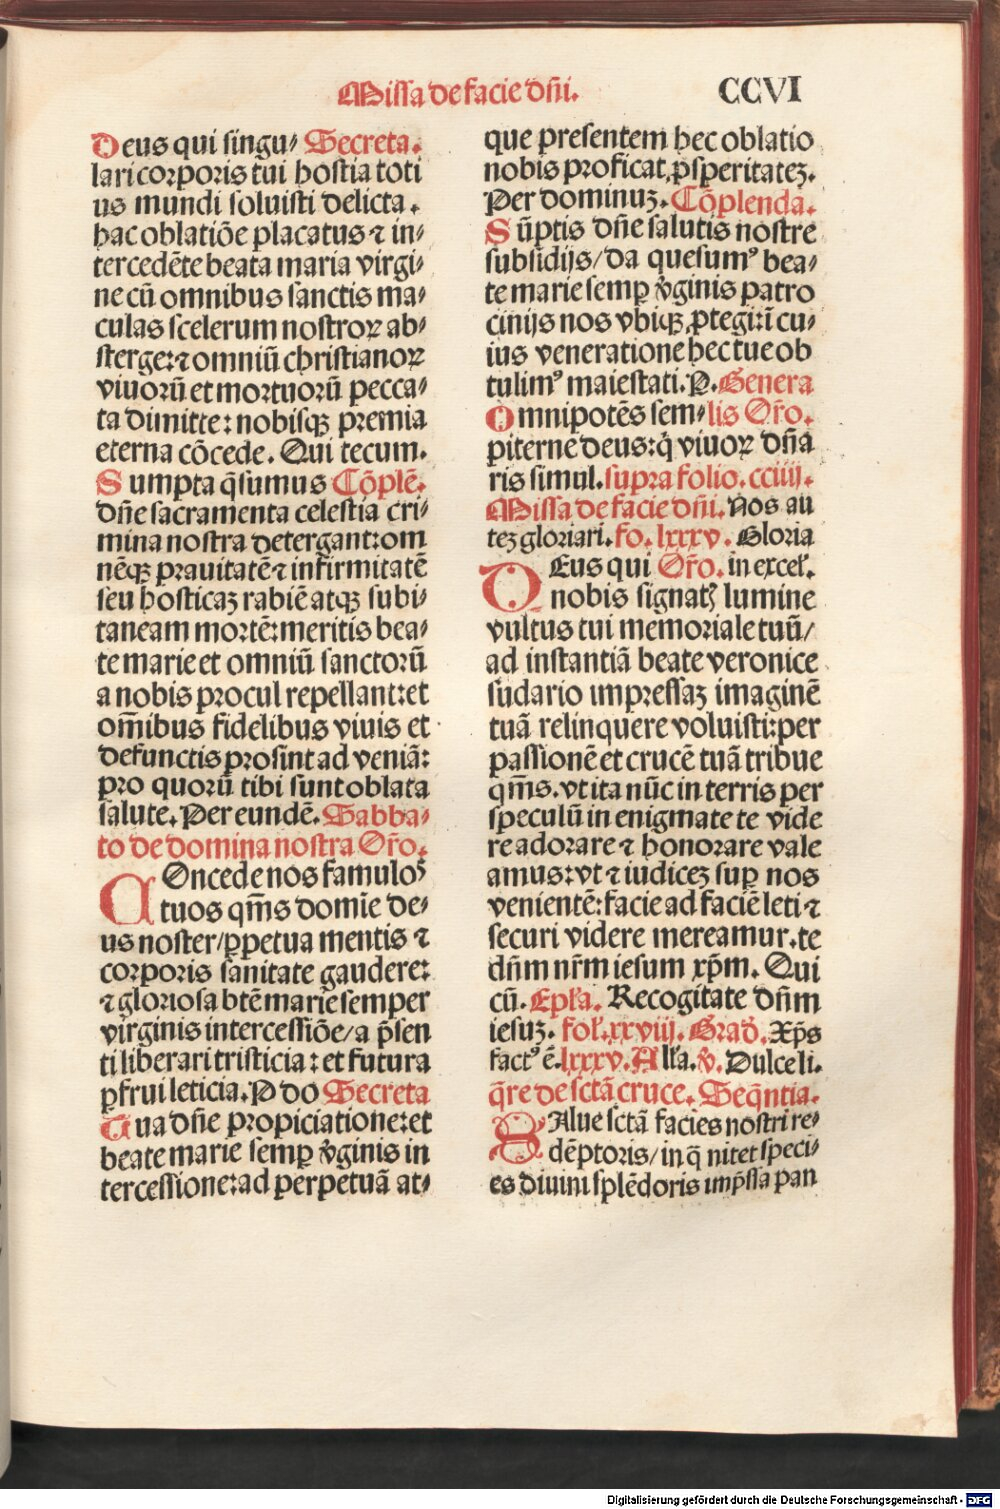 Missa de facie dñi. CCVI
Deus qui singu⸗ Secreta.
lari corporis tui hostia toti
us mundi soluisti delicta.
hac oblatiõe placatus ⁊ in⸗
tercedẽte beata maria virgi⸗
ne cũ omnibus sanctis ma⸗
culas scelerum nostroꝝ ab⸗
sterge: ⁊ omniũ christianoꝝ
viuorũ et mortuorũ pecca⸗
ta dimitte: nobisqꝫ premia
eterna cõcede. Qui tecum.
Sumpta q̃sumus Cõplẽ.
dñe sacramenta celestia cri⸗
mina nostra detergant: om
nẽqꝫ prauitatẽ ⁊ infirmitatẽ
seu hosticaꝫ rabiẽ atqꝫ subi⸗
taneam mortẽ: meritis bea⸗
te marie et omniũ sanctorũ
a nobis procul repellant: et
om̃ibus fidelibus viuis et
defunctis prosint ad veniã:
pro quorũ tibi sunt oblata
salute. Per eundẽ. Sabba⸗
to de domina nostra Or̃o.
COncede nos famulos
tuos qm̃s domĩe de⸗
us noster/ ꝑpetua mentis ⁊
corporis sanitate gaudere:
⁊ gloriosa btẽ marie semper
virginis intercessiõe/ a p̃sen
ti liberari tristicia: et futura
ꝑfrui leticia. P do Secreta
Tua dñe propiciatione: et
beate marie semꝑ v̾ginis in
tercessione: ad perpetuã at⸗
que presentem hec oblatio
nobis proficat, ꝓsperitateꝫ.
Per dominuꝫ. Cõplenda.
Sũptis dñe salutis nostre
subsidijs/ da quesumꝰ bea⸗
te marie semꝑ v̾ginis patro
cinijs nos vbiqꝫ ꝓtegi: ĩ cu⸗
ius veneratione hec tue ob
tulimꝰ maiestati. P. Genera
Omnipotẽs sem⸗lis Or̃o.
piterne deus: q̇ viuoꝝ dña
ris simul. supra folio. cciiij.
Missa de facie dñi. Nos au
teꝫ gloriari. fo. lxxxv. Gloria
DEus qui Or̃o. in excel̃.
nobis signatꝭ lumine
vultus tui memoriale tuũ/
ad instantiã beate veronice
sudario impressaꝫ imaginẽ
tuã relinquere voluisti: per
passionẽ et crucẽ tuã tribue
qm̃s. vt ita nũc in terris per
speculũ in enigmate te vide
re adorare ⁊ honorare vale
amus: vt ⁊ iudiceꝫ suꝑ nos
venientẽ: facie ad faciẽ leti ⁊
securi videre mereamur. te
dñm nr̃m iesum xp̃m. Qui
cũ. Epl̃a. Recogitate dñm
iesuꝫ. fol̃. xxviij. Grad̾. Xp̃s
factꝰ ẽ. lxxxv. All̃a. v̾. Dulce li.
q̃re de sctã cruce. Seq̃ntia.
SAlue sctã facies nostri re⸗
dẽptoris/ in q̃ nitet speci⸗
es diuini splẽdoris imp̃ssa pan
Digitalisierung gefördert durch die Deutsche Forschungsgemeinschaft - DFG